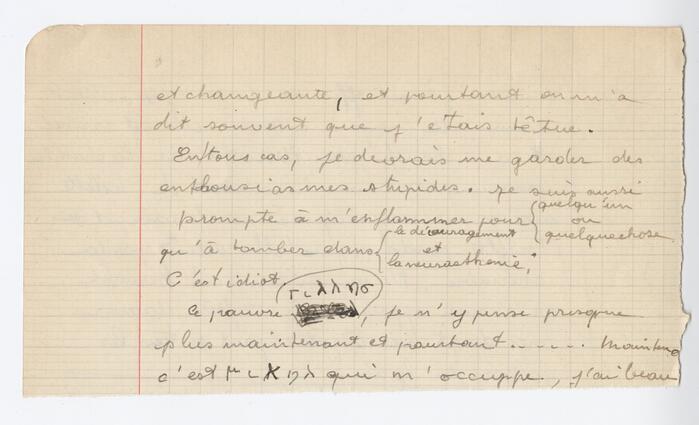 et changeante, et pourtant on m'a
dit souvent que j'étais têtue.
En tous cas, je devrais me garder des
enthousiasmes stupides. Je suis aussi
prompte à m'enflammer pour { quelqu'un ou quelquechose
qu'à tomber dans { le découragement et la neurasthenie,
C'est idiot.
Ce pauvre , je n'y pense presque
plus maintenant et pourtant ..... Mainten
c'est qui m'occuppe, j'ai beau